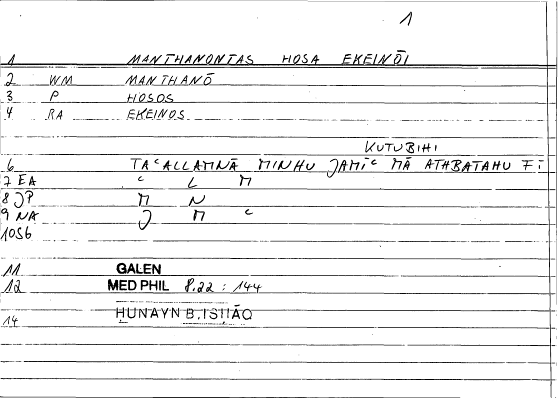 1
1 MANTHANONTAS HOSA EKEINŌI
2 WM MANTHANŌ
3 P HOSOS
4 RA EKEINOS
KUTUBIHI
6 TAᶜALLAMNĀ MINHU JAMĪᶜ MĀ ATHBATAHU FĪ
7 EA ᶜ L M
8 JP M N
9 NA J M ᶜ
1056
11 GALEN
12 MED PHIL 8.22 : 144
14 HUNAYN B. ISHĀQ